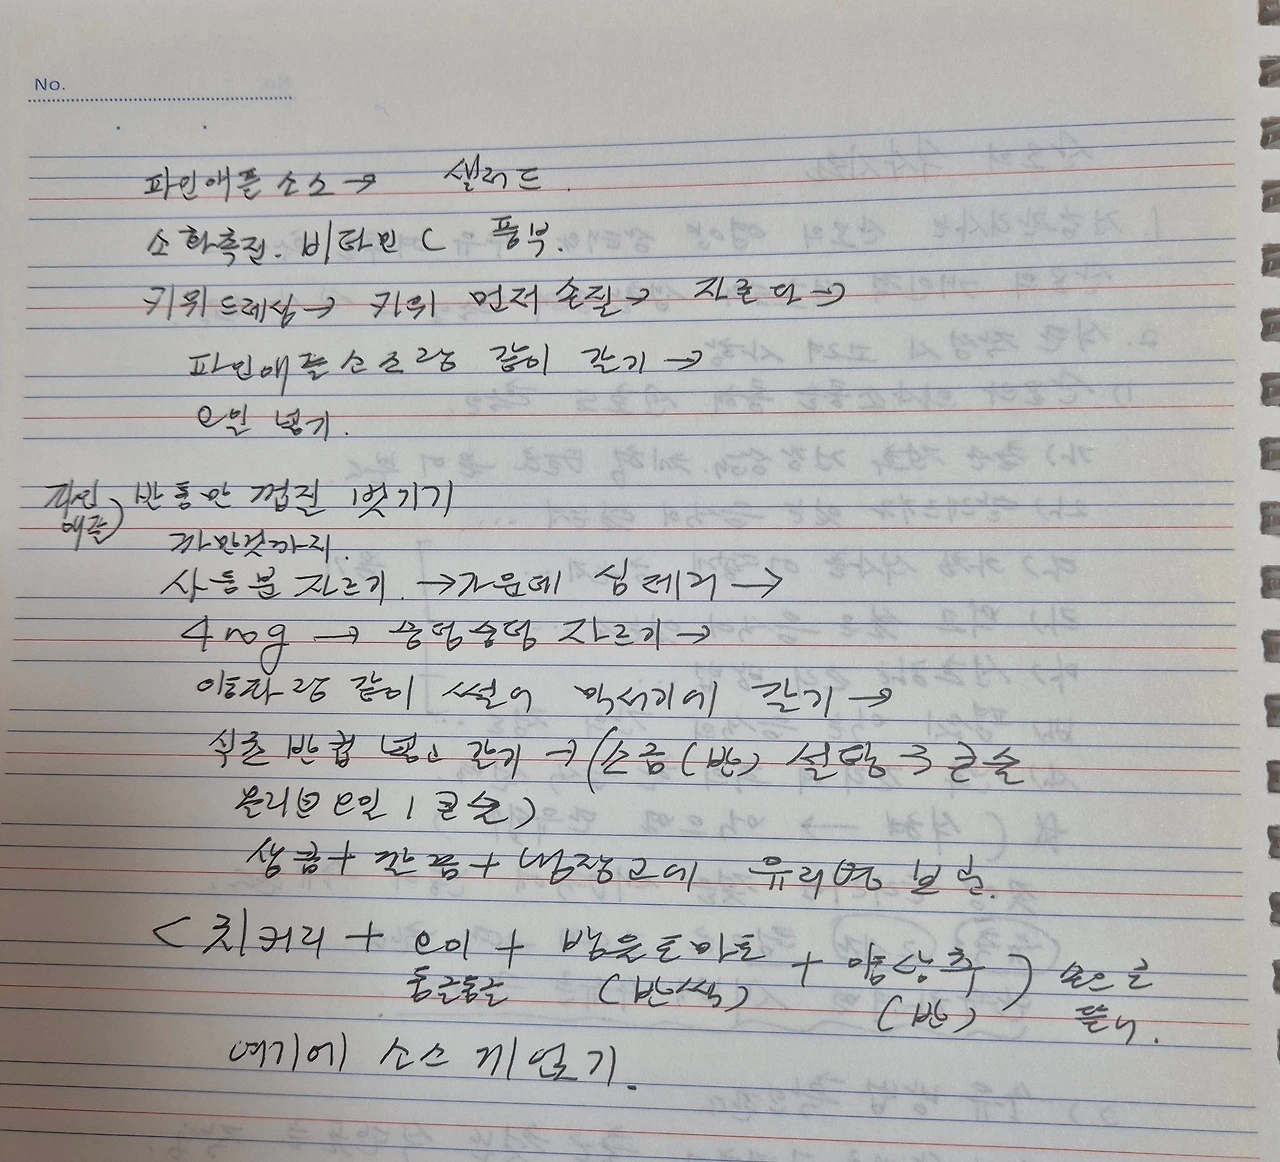 No.
파인애플소스→ 샐러드.
소화촉진. 비타민C 풍부.
키위드레싱→ 키위 먼저 손질→ 자른다→
파인애플소스랑 같이 갈기→
오일 넣기.
파인애플) 반통만 껍질 벗기기
까만것까지.
사등분 자르기. →가운데 심제거→
400g → 숭덩숭덩 자르기→
양파랑 같이 썰어 믹서기에 갈기→
식초 반컵 넣고 갈기→(소금(반) 설탕 3큰술
올리브오일 1큰술)
상큼+달콤+냉장고에 유리병 보관.
<치커리 + 오이 + 방울토마토 + 양상추) 손으로
둥글둥글 (반쪽) (반) 뜯다.
여기에 소스 끼얹기.